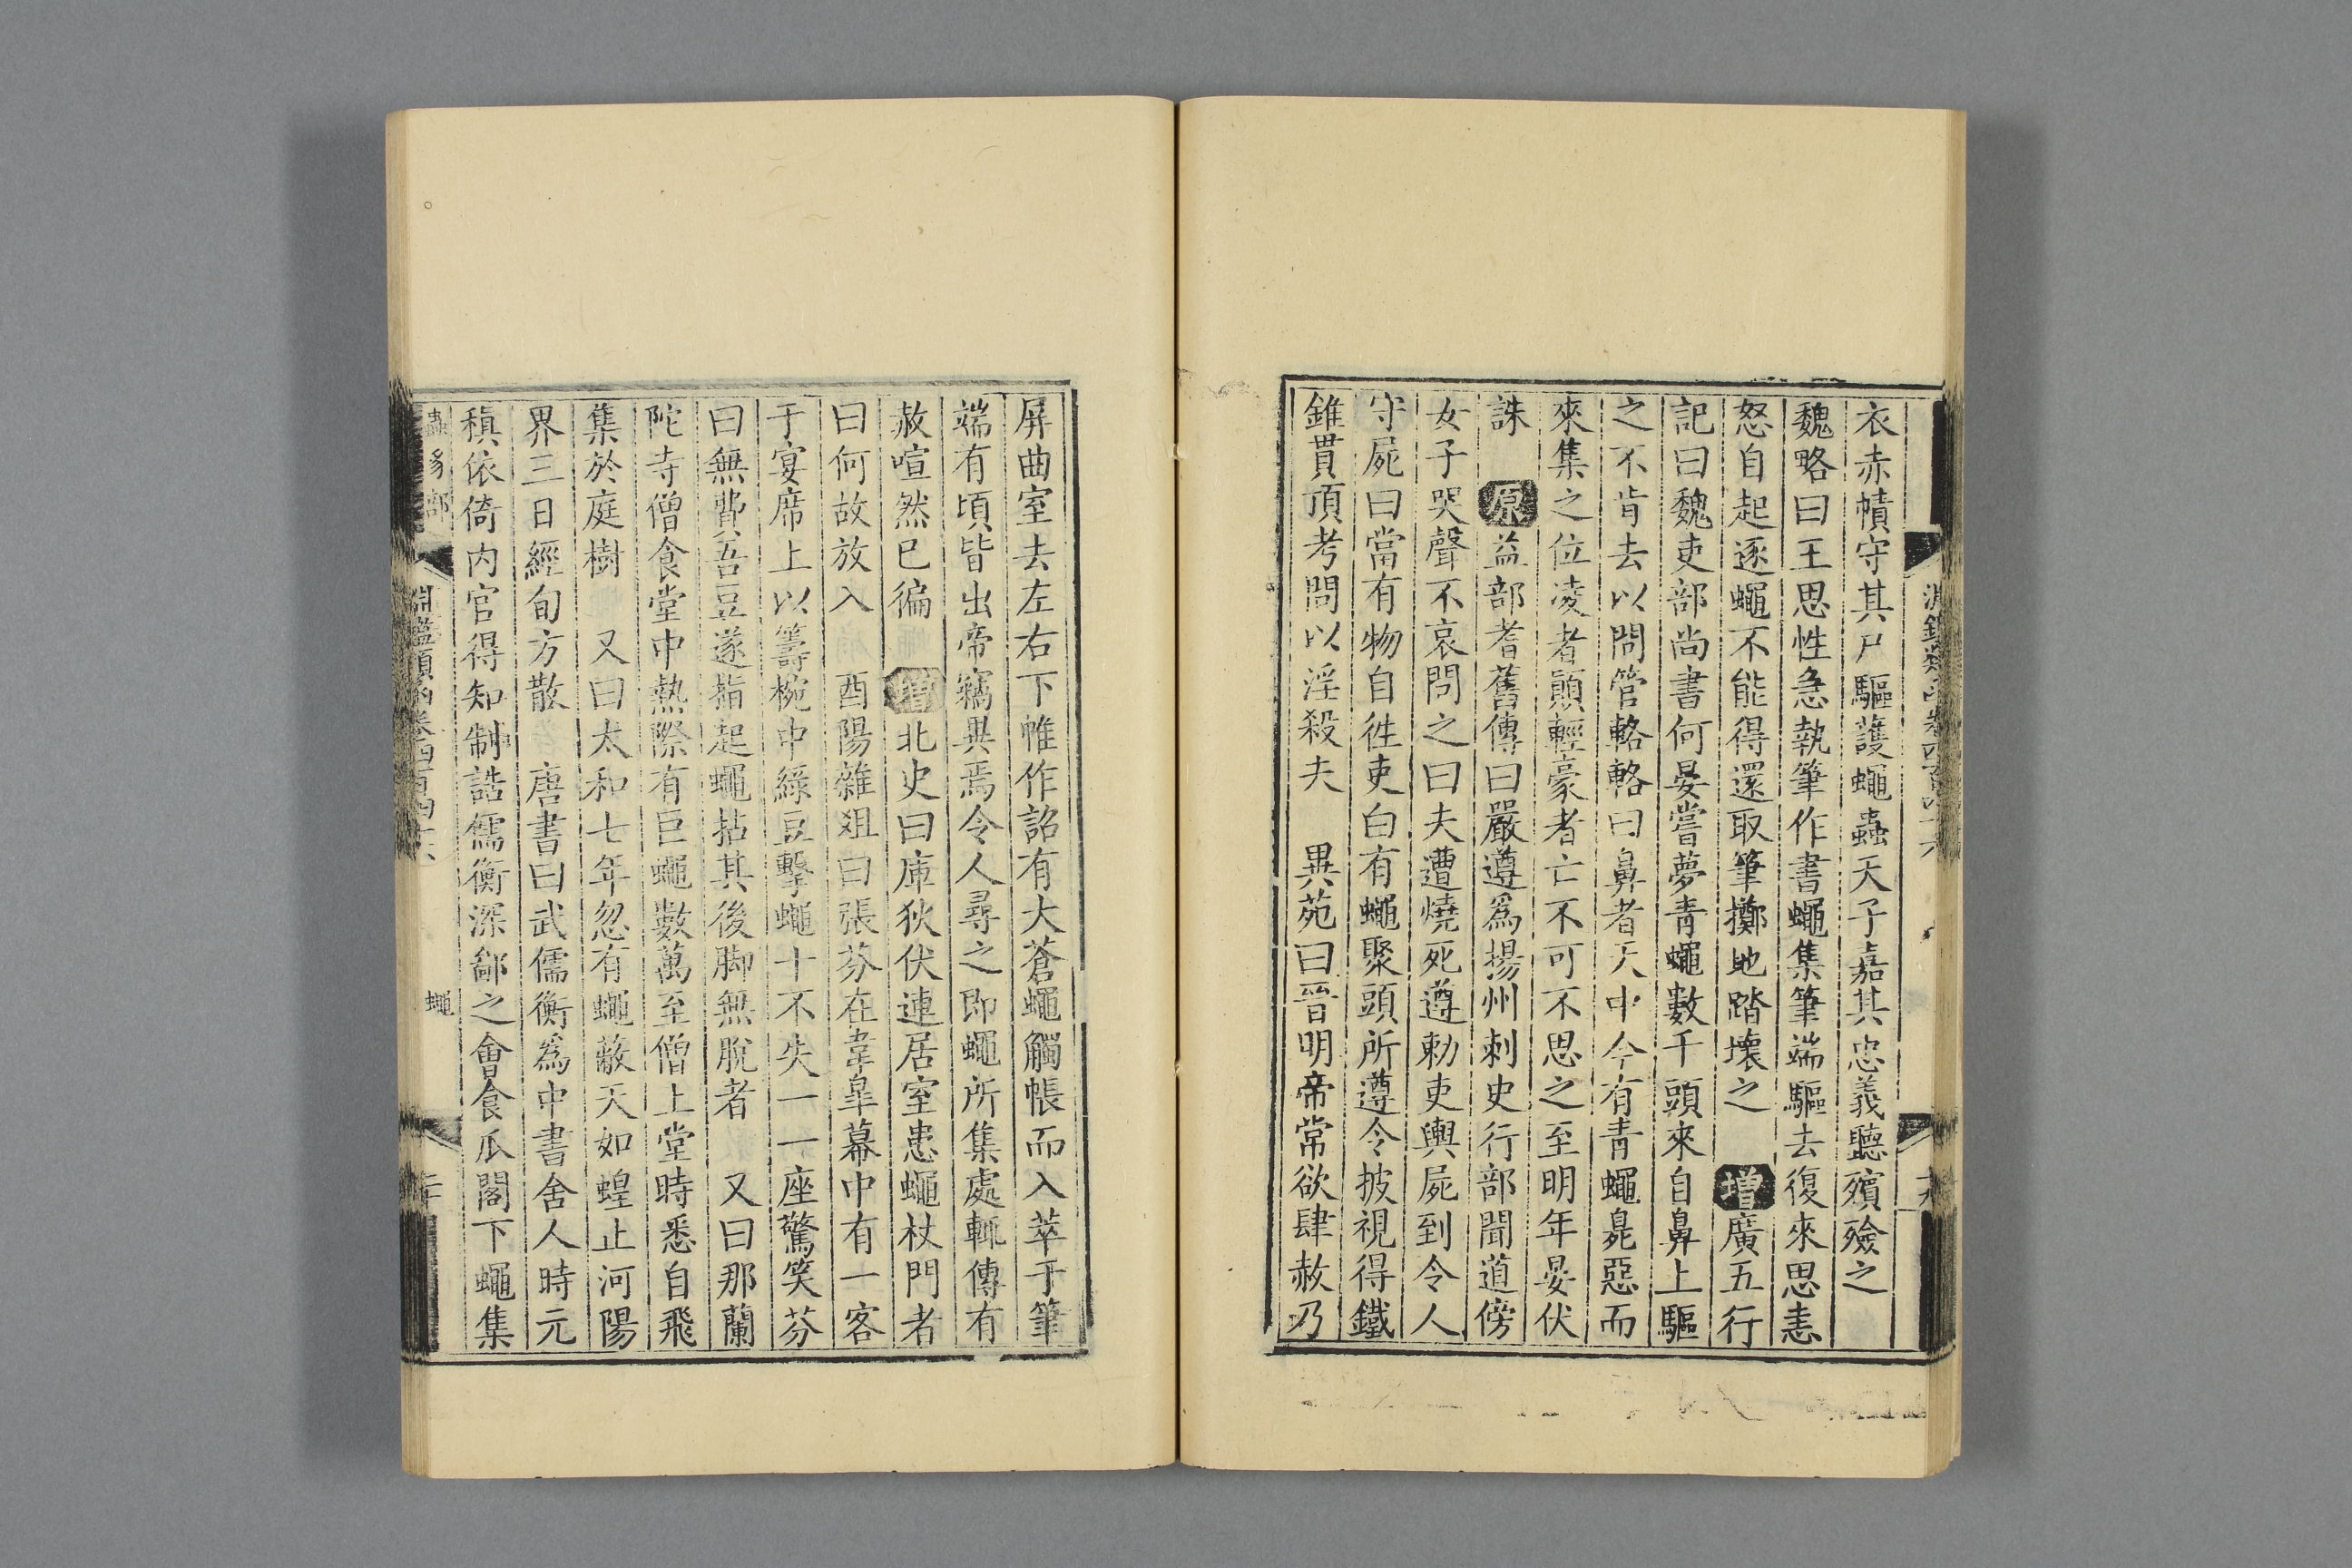 衣赤幘守其尸驅護蠅蟲天子嘉其忠義聽殯殮之
魏略曰王思性急執筆作書蠅集筆端驅去復來思恚
怒自起逐蠅不能得還取筆擲地踏壞之　增廣五行
記曰魏吏部尚書何晏嘗夢青蠅數千頭來自鼻上驅
之不肯去以問管輅輅曰鼻者天中今有青蠅臭惡而
來集之位凌者顛輕豪者亡不可不思之至明年晏伏
誅　原益部耆舊傳曰嚴遵爲揚州刺史行部聞道傍
女子哭聲不哀問之曰夫遭燒死遵勅吏輿屍到令人
守屍曰當有物自徃吏白有蠅聚頭所遵令披視得鐵
錐貫頂考問以淫殺夫　異苑曰晉明帝常欲肆赦乃
屏曲室去左右下帷作詔有大蒼蠅觸帳而入萃于筆
端有頃皆出帝竊異焉令人尋之即蠅所集處輒傳有
赦喧然巳徧　增北史曰庫狄伏連居室患蠅杖門者
曰何故放入　酉陽雜俎曰張芬在韋臯幕中有一客
于宴席上以籌椀中綠豆擊蠅十不失一一座驚笑芬
曰無費吾豆遂指起蠅拈其後脚無脫者　又曰那蘭
陀寺僧食堂中熱際有巨蠅數萬至僧上堂時悉自飛
集於庭樹　又曰太和七年忽有蠅蔽天如蝗止河陽
界三日經旬方散　唐書曰武儒衡爲中書舍人時元
稹依倚内官得知制誥儒衡深鄙之會食瓜閣下蠅集
蟲豸部
淵鑑類函卷四百四十六
蠅